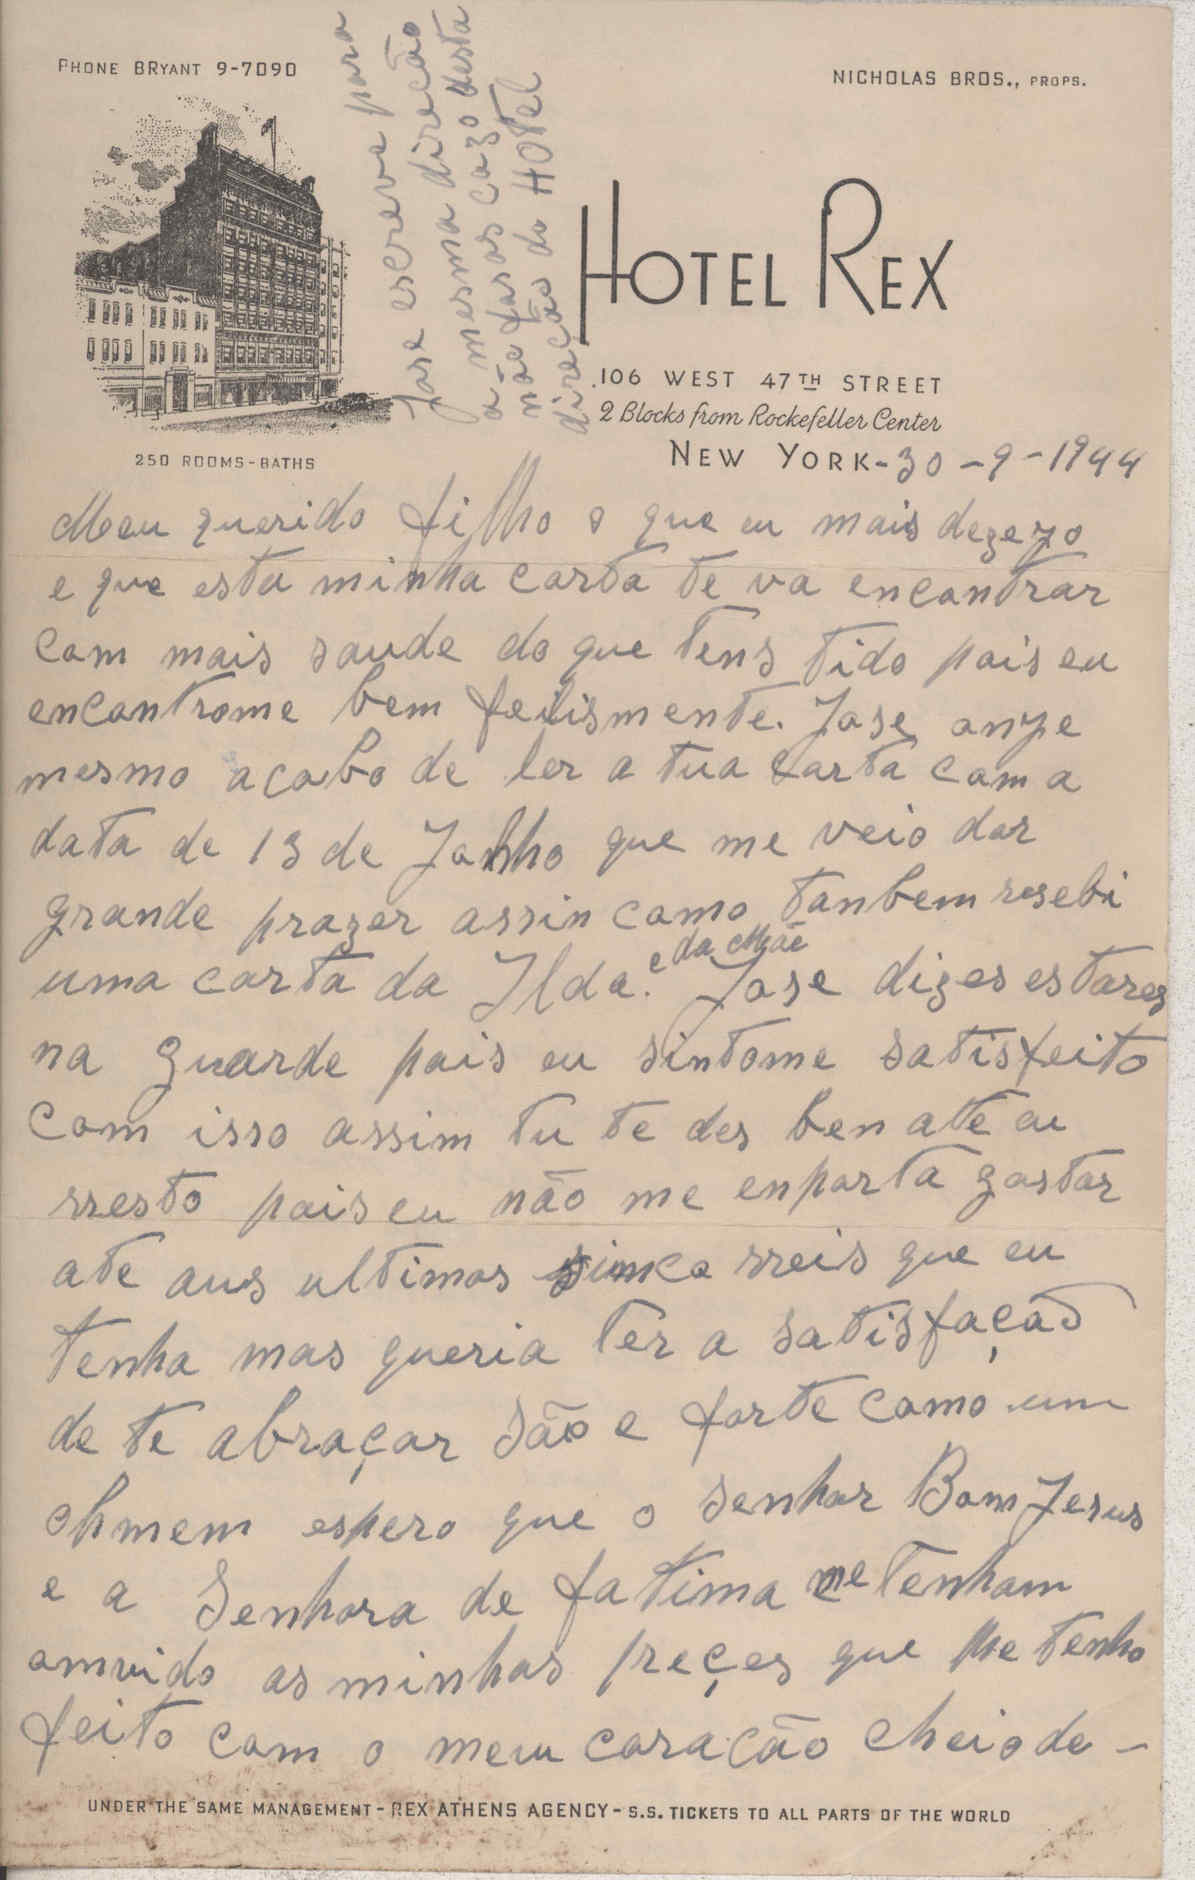 PHONE BRYANT 9-7090
NICHOLAS BROS., PROPS.
Jose escreve para
a mesma direcão
as cazo desta
não fasas
direcão do HOTel
HOTEL REX
106 WEST 47TH STREET
2 Blocks from Rockefeller Center
250 ROOMS-BATHS
NEW YORK-30-9-1944
Meu querido filho o que eu mais dezeyo
e que esta minha carta te va encontrar
com mais saude do que tens tido pois eu
encontrome bem felismente. Jose onye
mesmo acabo de ler a tua carta com a
data de 13 de Jonho que me veio dar
grande prazer assin como tanbem resebi
uma carta da Ilda. e da Mãe Jose dizes estares
na Guarde pois eu sintome satisfeito
com isso assim tu te des ben ate eu
rresto pois eu não me enporta gastar
ate aus ultimos sinco rreis que eu
tenha mas queria ter a satisfação
de te abraçar são e forte como um
ohmem espero que o Senhor Bom Jesus
e a Senhora de fatima me tenham
omvido as minhas preçes que lhe tenho
feito com o meu coração cheio de -
UNDER THE SAME MANAGEMENT - REX ATHENS AGENCY - S.S. TICKETS TO ALL PARTS OF THE WORLD